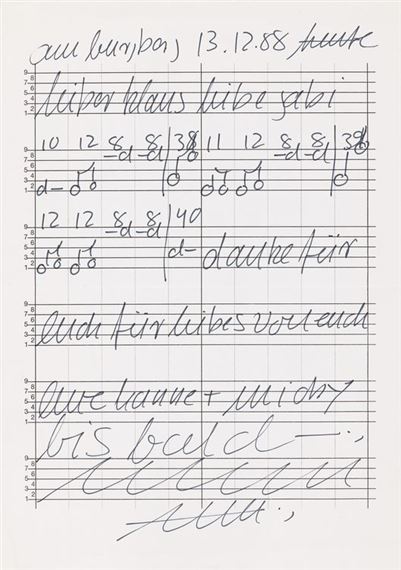 am burgberg 13.12.88 heute
lieber klaus liebe gabi
10 12 8 8 38 11 12 8 8 39
-d -d -d -d
d-
12 12 8 8 40
-d -d d- danke für
euch für liebes von euch
eure hanne + micky
bis bald —.,